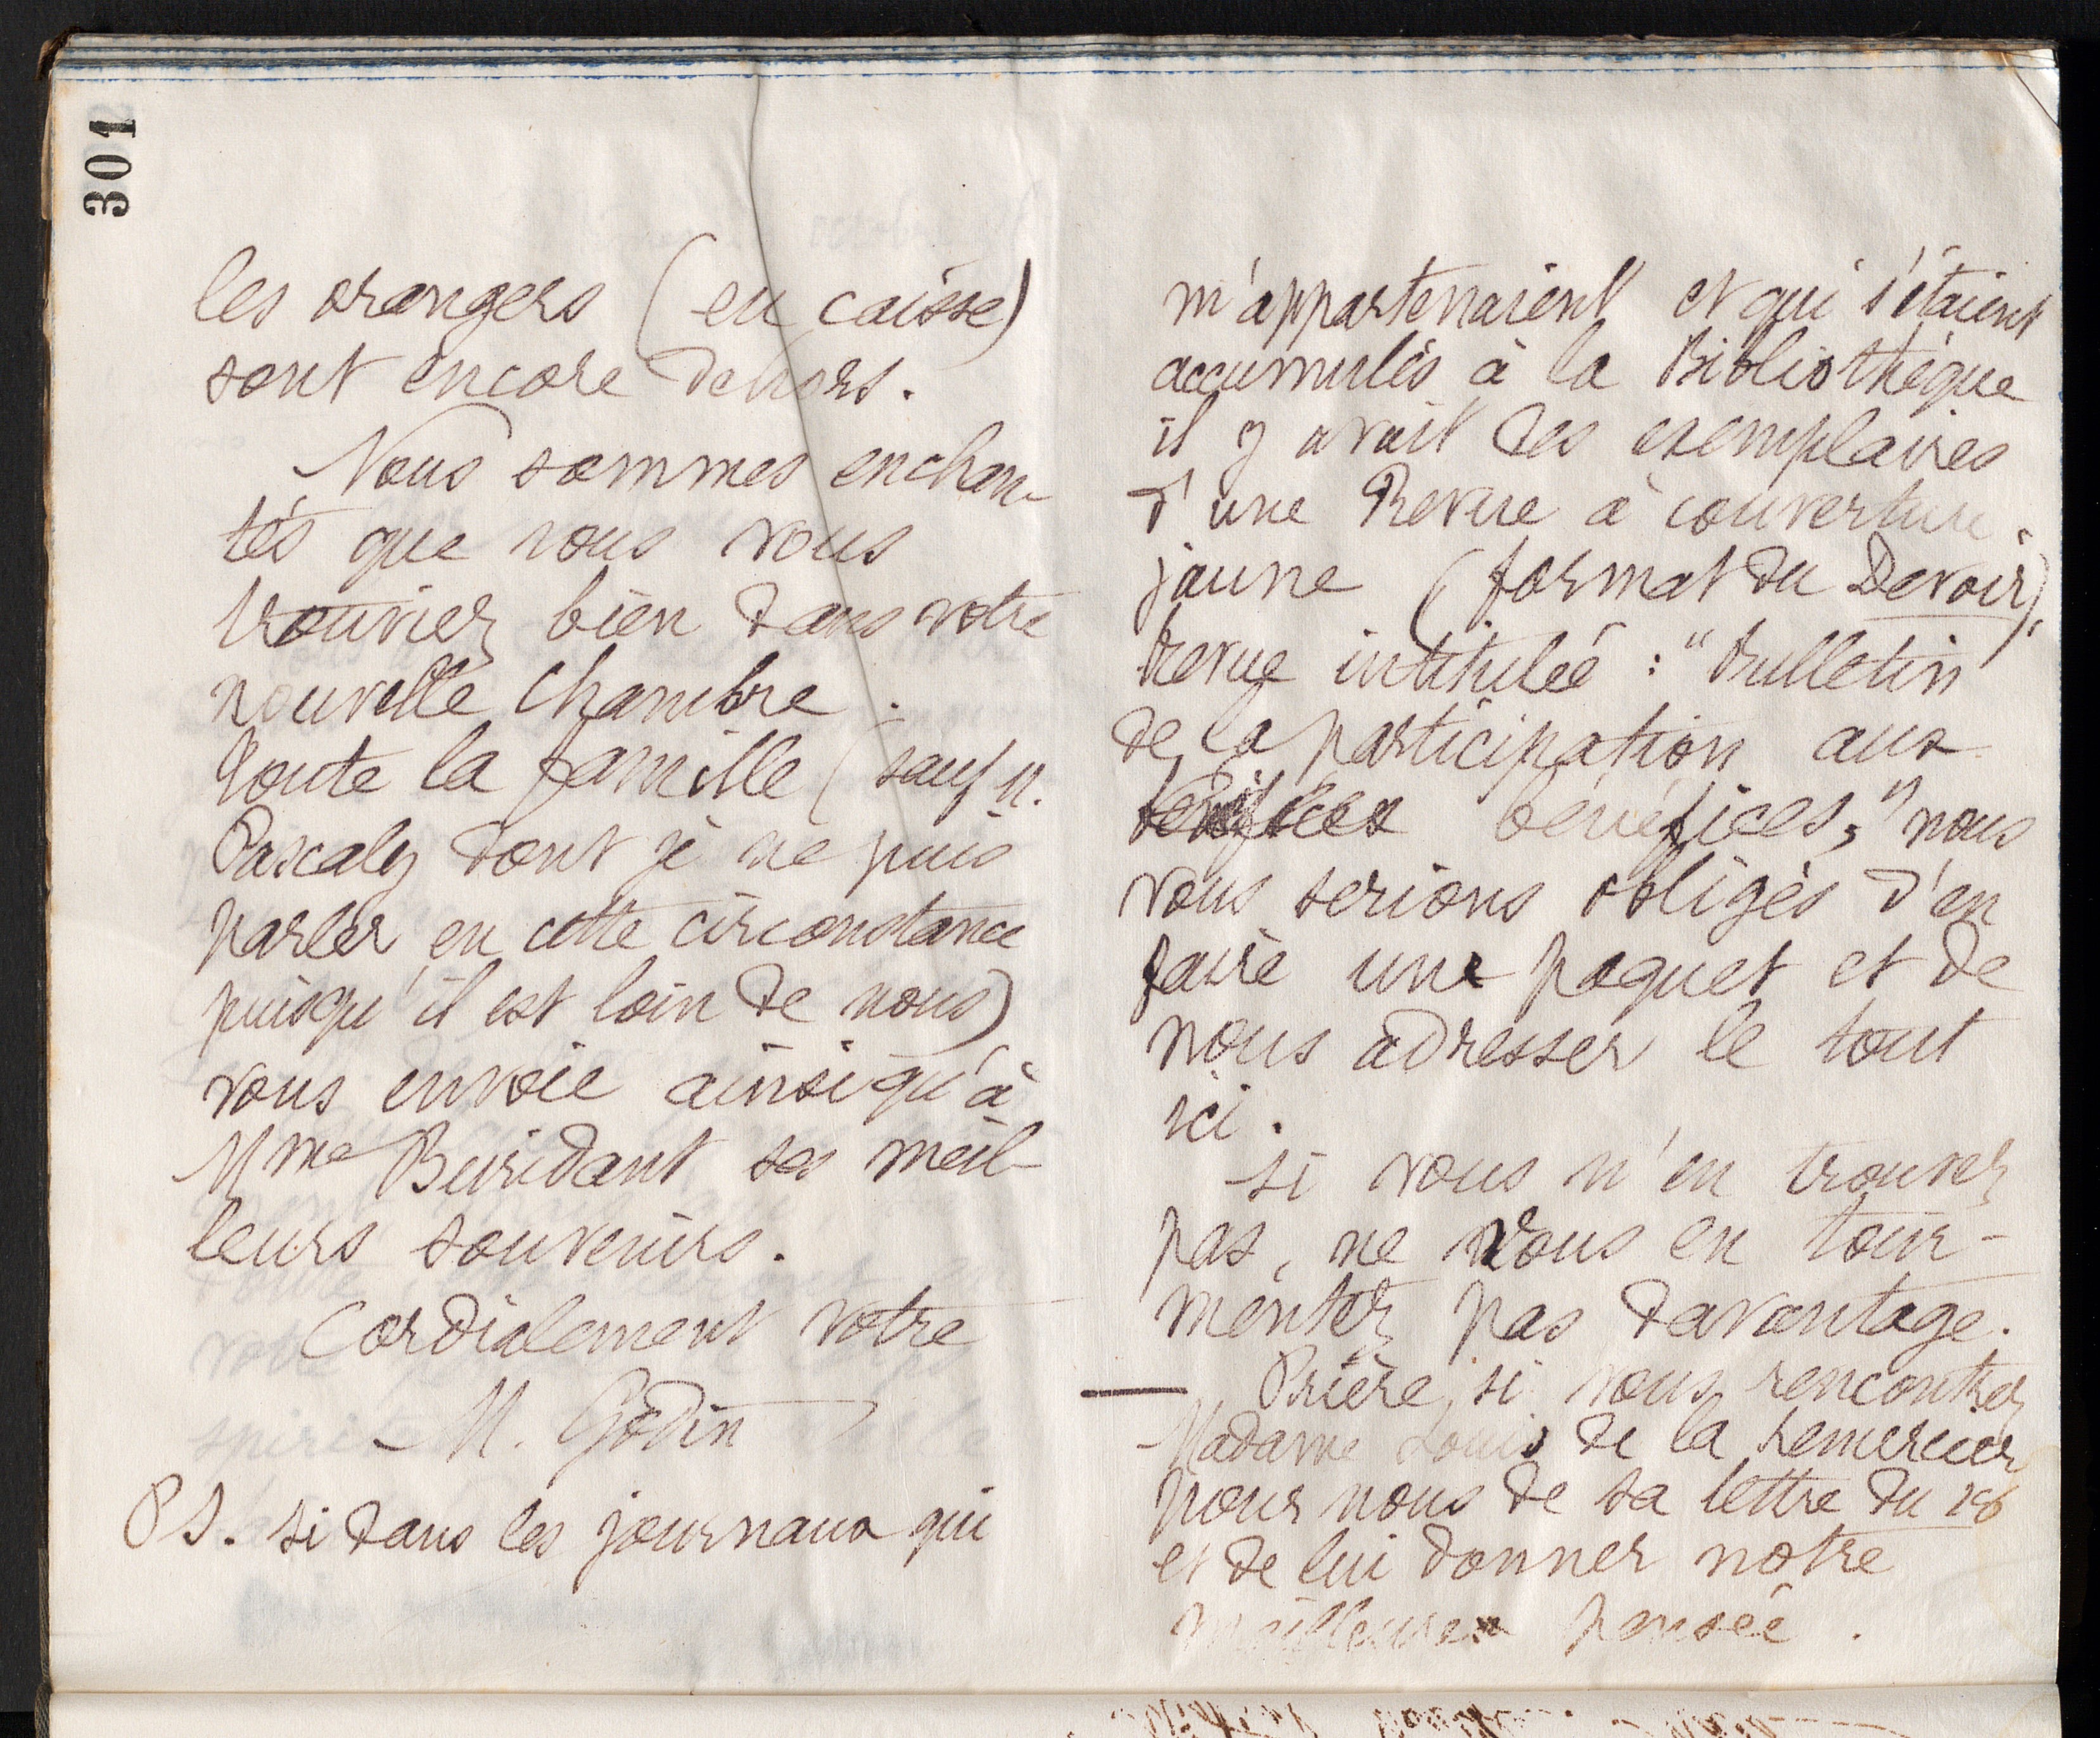 301
les orangers (en caisse)
sont encore dehors.
Nous sommes enchan-
tés que vous vous
trouviez bien dans votre
nouvelle chambre.
Toute la famille (sauf M.
Pascaly dont je ne puis
parler en cette circonstance
puisqu'il est loin de nous)
vous envoie ainsi qu'à
Mme Buridant ses meil-
leurs souvenirs.
Cordialement votre
M. Godin
PS. si dans les journaux qui
m'appartenaient et qui s'étaient
accumulés à la Bibliothèque
il y avait des exemplaires
d'une Revue à couverture
jaune (format du Devoir),
Revue intitulée : "Bulletin
de la participation aux
bénéfices bénéfices," nous
vous serions obligés d'en
faire une paquet et de
nous adresser le tout
ici.
si vous n'en trouvez
pas, ne vous en tour-
mentez pas davantage.
— Prière, si vous rencontrez
Madame Louis de la remercier
pour nous de sa lettre du
et de lui donner notre
meilleure pensée.